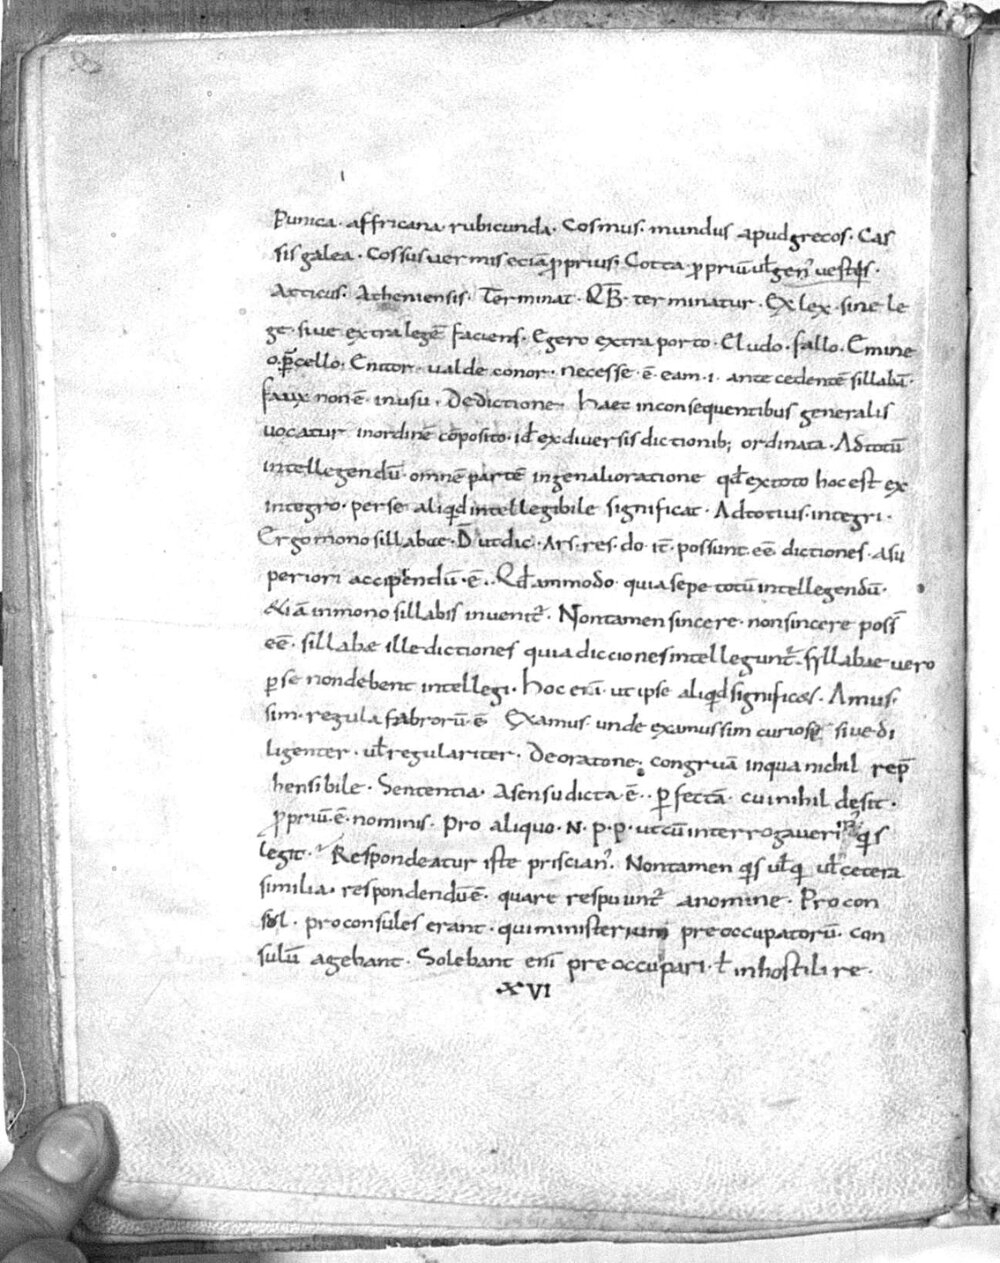 Punica · affricana rubicunda · Cosmus · mundus apud grecos · Cas
sis galea · Cossus vermis eciā ꝓprius · Cotta · ꝓpriū uƚ gen᾽ uestis ·
Atticus · Atheniensis · Terminat · QB̄ · terminatur · Exlex · sine le
ge · siue extra legē faciens · Egero extra porto · Eludo · fallo · Emine
o · p̄cello · Enitor · ualde conor · necesse · ē · eam · i · ante cedentē sillabā ·
faux non ē · inusu · De dictione · Haec inconsequentibus generalis
uocatur inordinē cōposito · id ex diuersis dictionib; ordinata · Ad totū
intellegendū · omnē partē ingenali oratione qd̄ extoto hoc est ex
integro · per se aliqd intellegibile significat · Ad totius · integri ·
Ergo mono sillabae · D̄ ut dic · Ars · res · do · it̄ · possunt eē dictiones · asu
periori accipiendū · ē · Qd̄ ammodo · quia sepe totū intellegendū ·
&iā inmono sillabis inuenit᾽ · Non tamen sincere · non sincere poss̄
eē · sillabae ille dictiones quia dicciones intellegunt᾽ · syllabae uero
ꝑ se non debent intellegi · hoc enī · ut ipse aliqd significes · Amus
sim · regula fabrorū · ē Examus · unde examussim curiose siue di
ligenter · uƚ regulariter · De oratone · congruā inqua nichil rep̄
hensibile · Sententia · Asensu dicta · ē · ꝑfectā · cui nihil desit ·
ꝓpriū · ē · nominis · Pro aliquo · N · p · p · ut cū interrogaueri qs
legit · Respondeatur iste priscian᾽ · Non tamen qs uƚ q uƚ cetera
similia · respondendū ē · quare respuunt᾽ anomine · Pro con
sul · proconsules erant · qui ministerium preoccupatorū · con
sulū agebant · Solebant enī preoccupari · ƚ inhostili re ·
· XVI